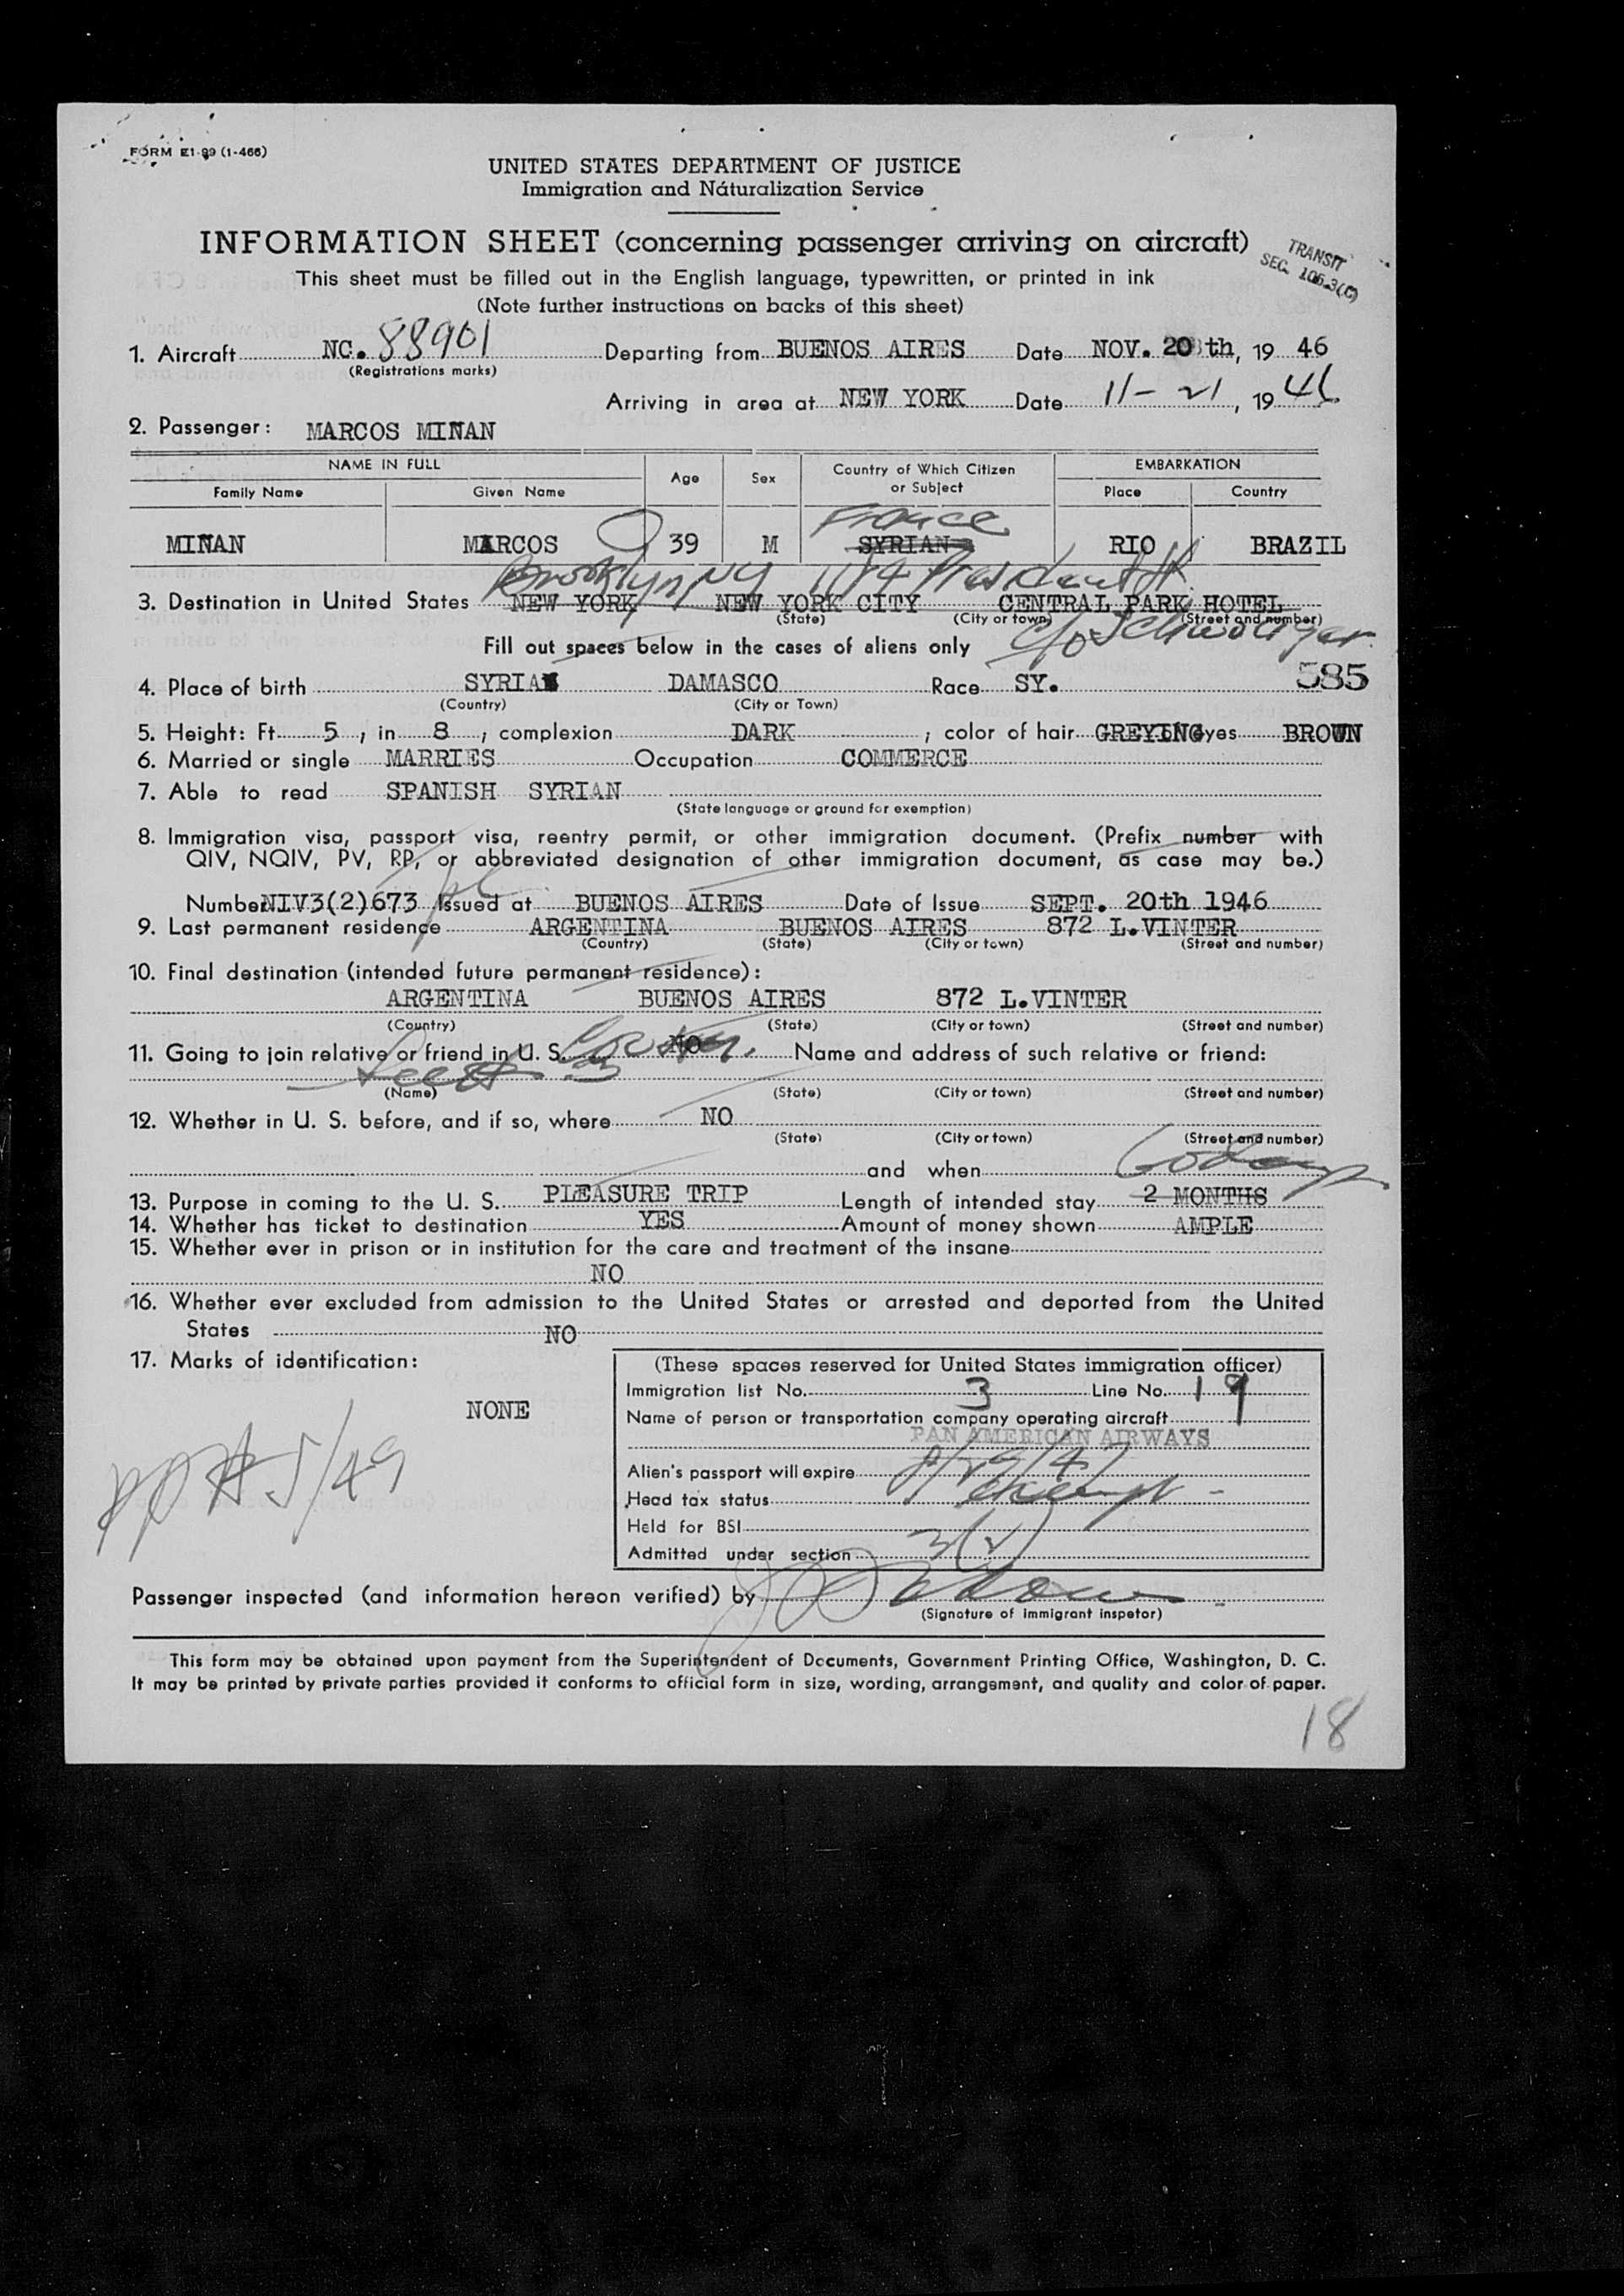 FORM E1-99 (1-466)
UNITED STATES DEPARTMENT OF JUSTICE
Immigration and Naturalization Service
INFORMATION SHEET (concerning passenger arriving on aircraft)
TRANSIT
SEC. 106.3(C)
This sheet must be filled out in the English language, typewritten, or printed in ink
(Note further instructions on backs of this sheet)
1. Aircraft NC. 88901 Departing from BUENOS AIRES Date NOV. 20 th, 19 46
(Registrations marks)
Arriving in area at NEW YORK Date 11-21, 19 46
2. Passenger: MARCOS MINAN
NAME IN FULL Age Sex Country of Which Citizen or Subject EMBARKATION
Family Name Given Name Place Country
France
MINAN MARCOS 39 M SYRIAN RIO BRAZIL
Brooklyn NY 1184 President St
3. Destination in United States NEW YORK NEW YORK CITY CENTRAL PARK HOTEL
(State) (City or town) (Street and number)
Fill out spaces below in the cases of aliens only c/o
585
4. Place of birth SYRIA DAMASCO Race SY.
(Country) (City or Town)
5. Height: Ft. 5, in 8, complexion DARK; color of hair GREYING eyes BROWN
6. Married or single MARRIES Occupation COMMERCE
7. Able to read SPANISH SYRIAN
(State language or ground for exemption)
8. Immigration visa, passport visa, reentry permit, or other immigration document. (Prefix number with
QIV, NQIV, PV, RP, or abbreviated designation of other immigration document, as case may be.)
Number NIV3(2)673 Issued at BUENOS AIRES Date of Issue SEPT. 20th 1946
9. Last permanent residence ARGENTINA BUENOS AIRES 872 L.VINTER
(Country) (State) (City or town) (Street and number)
10. Final destination (intended future permanent residence):
ARGENTINA BUENOS AIRES 872 L.VINTER
(Country) (State) (City or town) (Street and number)
11. Going to join relative or friend in U. S. NO Name and address of such relative or friend:
(Name) (State) (City or town) (Street and number)
12. Whether in U. S. before, and if so, where NO
(State) (City or town) (Street and number)
and when
13. Purpose in coming to the U. S. PLEASURE TRIP Length of intended stay 2 MONTHS
14. Whether has ticket to destination YES Amount of money shown AMPLE
15. Whether ever in prison or in institution for the care and treatment of the insane
NO
16. Whether ever excluded from admission to the United States or arrested and deported from the United
States NO
17. Marks of identification:
NONE
PP # 5/49
(These spaces reserved for United States immigration officer)
Immigration list No. 3 Line No. 19
Name of person or transportation company operating aircraft
PAN AMERICAN AIRWAYS
Alien's passport will expire 8/29/47
Head tax status exempt -
Held for BSI
Admitted under section 3(2)
Passenger inspected (and information hereon verified) by
(Signature of immigrant inspetor)
This form may be obtained upon payment from the Superintendent of Documents, Government Printing Office, Washington, D. C.
It may be printed by private parties provided it conforms to official form in size, wording, arrangement, and quality and color of paper.
18